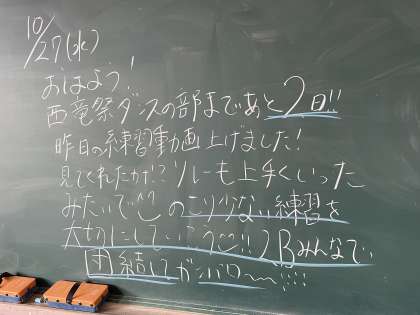 10/27(水)
おはよう!
西竜祭ダンスの部まであと2日!!
昨日の練習動画上げました!
見てくれたかな!? リレーも上手くいった
みたいで♡ のこり少ない練習を
大切にしていこう♡!! 2Bみんなで
団結してガンバロ〜〜!!!!